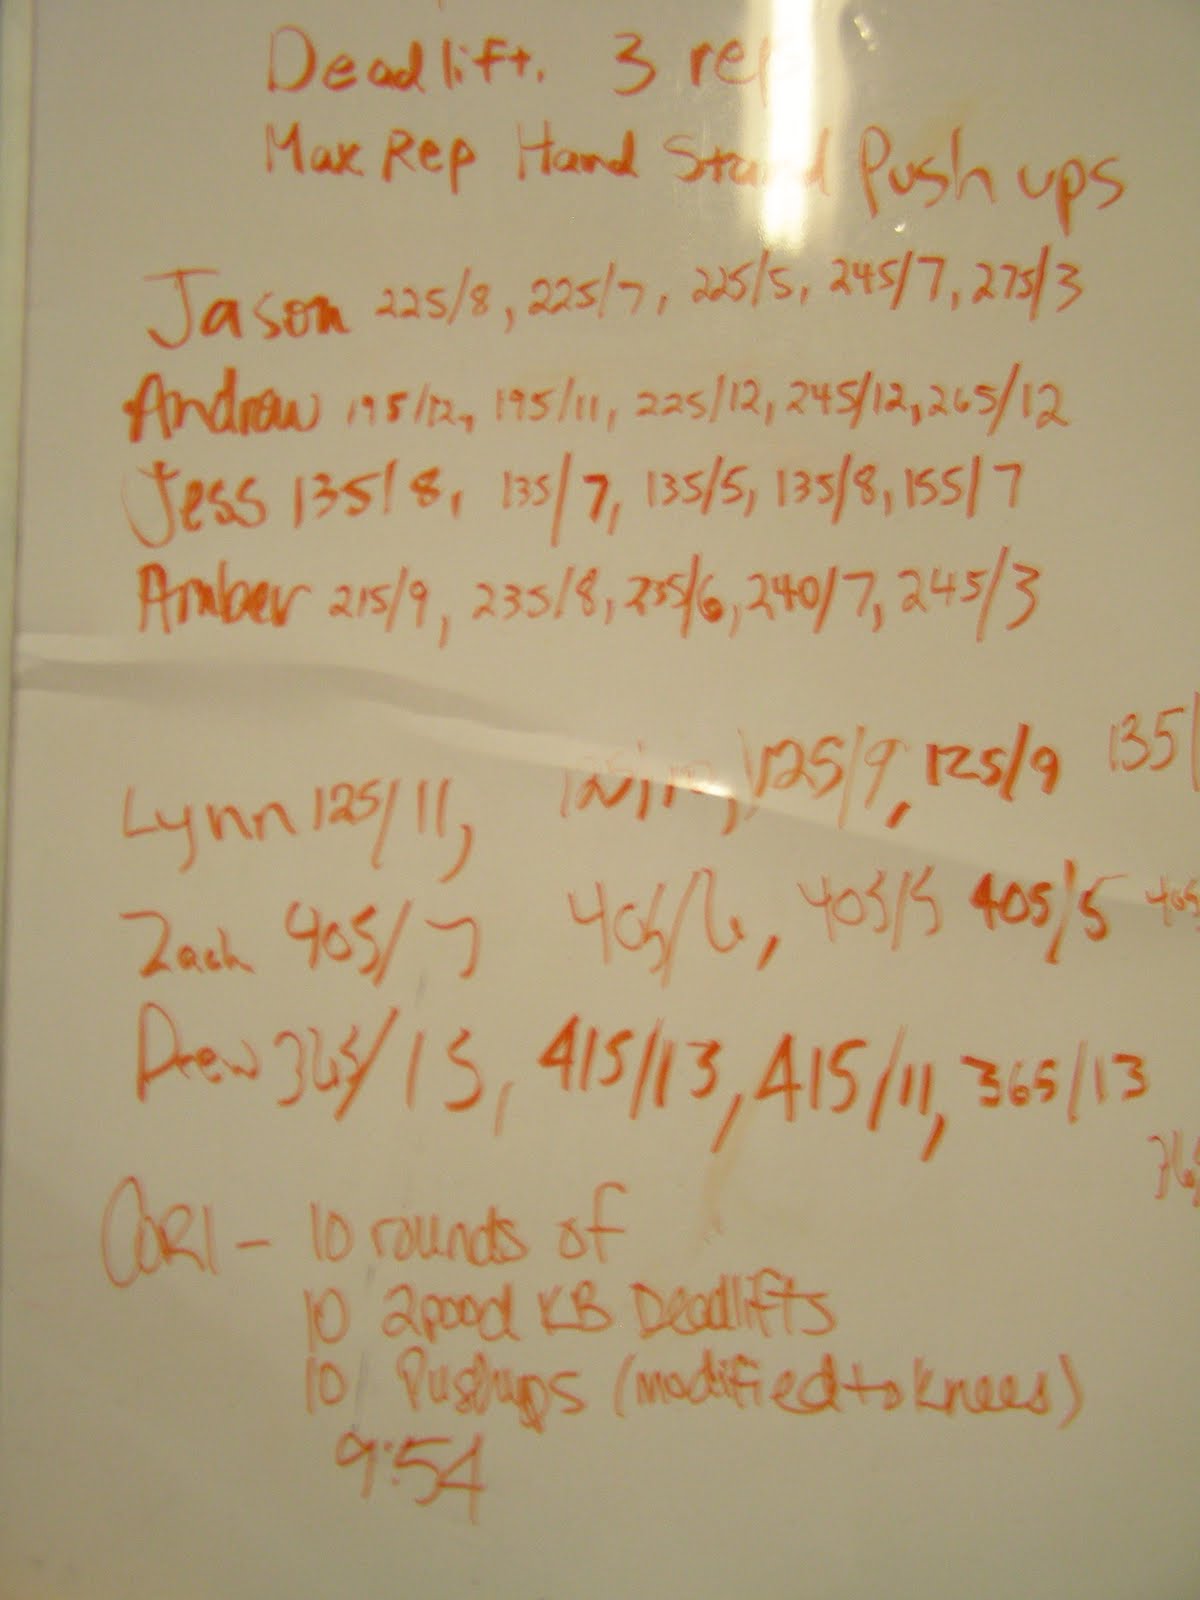 Deadlift. 3 rep
Max Rep Hand Stand Push ups
Jason 225/8, 225/7, 225/5, 245/7, 275/3
Andrew 195/12, 195/11, 225/12, 245/12, 265/12
Jess 135/8, 135/7, 135/5, 135/8, 155/7
Amber 215/9, 235/8, 235/6, 240/7, 245/3
Lynn 125/11, 125/9, 125/9 135/
Zach 405/7 405/6, 405/5 405/5 405
Drew 365/13, 415/13, 415/11, 365/13
CORI - 10 rounds of
10 2pood KB Deadlifts
10 Pushups (modified to knees)
9:54